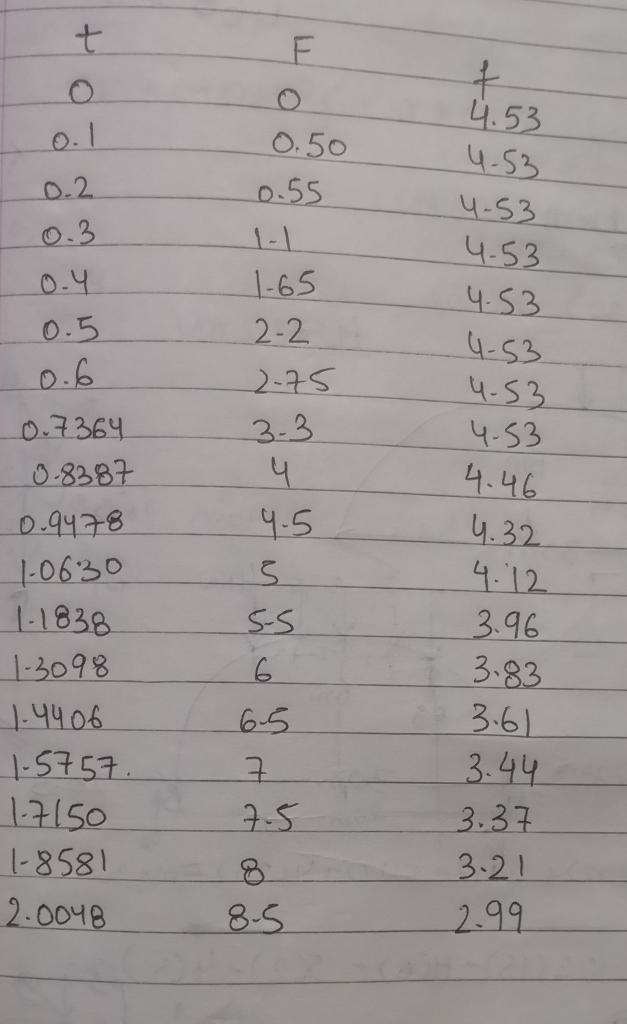 t F f
0 0 4.53
0.1 0.50 4.53
0.2 0.55 4.53
0.3 1.1 4.53
0.4 1.65 4.53
0.5 2.2 4.53
0.6 2.75 4.53
0.7364 3.3 4.53
0.8387 4 4.46
0.9478 4.5 4.32
1.0630 5 4.12
1.1838 5.5 3.96
1.3098 6 3.83
1.4406 6.5 3.61
1.5757. 7 3.44
1.7150 7.5 3.37
1.8581 8 3.21
2.0048 8.5 2.99